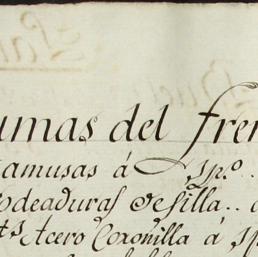 umas del fren
amusas á Jpo..
odeaduras de silla..
ts Acero Coronilla á Jp